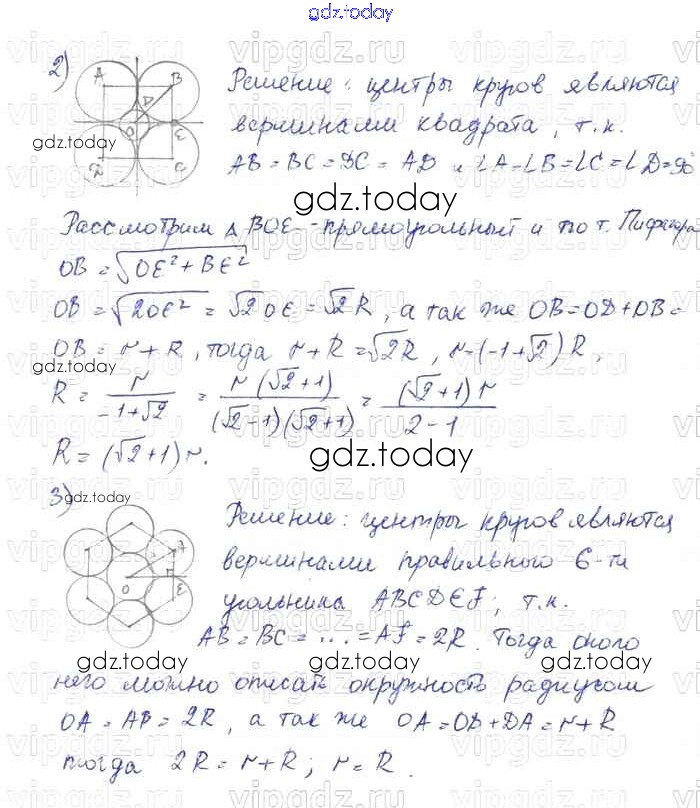 gdz.today
2)
A B
D
O E
D C
Решение: центры кругов являются
вершинами квадрата, т.к.
AB = BC = DC = AD и ∠A = ∠B = ∠C = ∠D = 90°
gdz.today
Рассмотрим Δ BOE - прямоугольный и по т. Пифагора
OB = √OE² + BE²
OB = √2OE² = √2 OE = √2 R, а так же OB = OD + DB =
OB = r + R, тогда r + R = √2R, r = (-1+√2) R,
gdz.today
R = r / -1+√2 = r (√2+1) / (√2-1)(√2+1) = (√2+1) r / 2-1
R = (√2+1) r.
gdz.today
3)
A
O E
Решение: центры кругов являются
вершинами правильного 6-ти
угольника ABCDEF, т.к.
AB = BC = ... = AF = 2R. Тогда около
gdz.today gdz.today
него можно описать окружность радиусом
OA = AB = 2R, а так же OA = OD + DA = r + R
тогда 2R = r + R; r = R.
gdz.today
vipgdz.ru